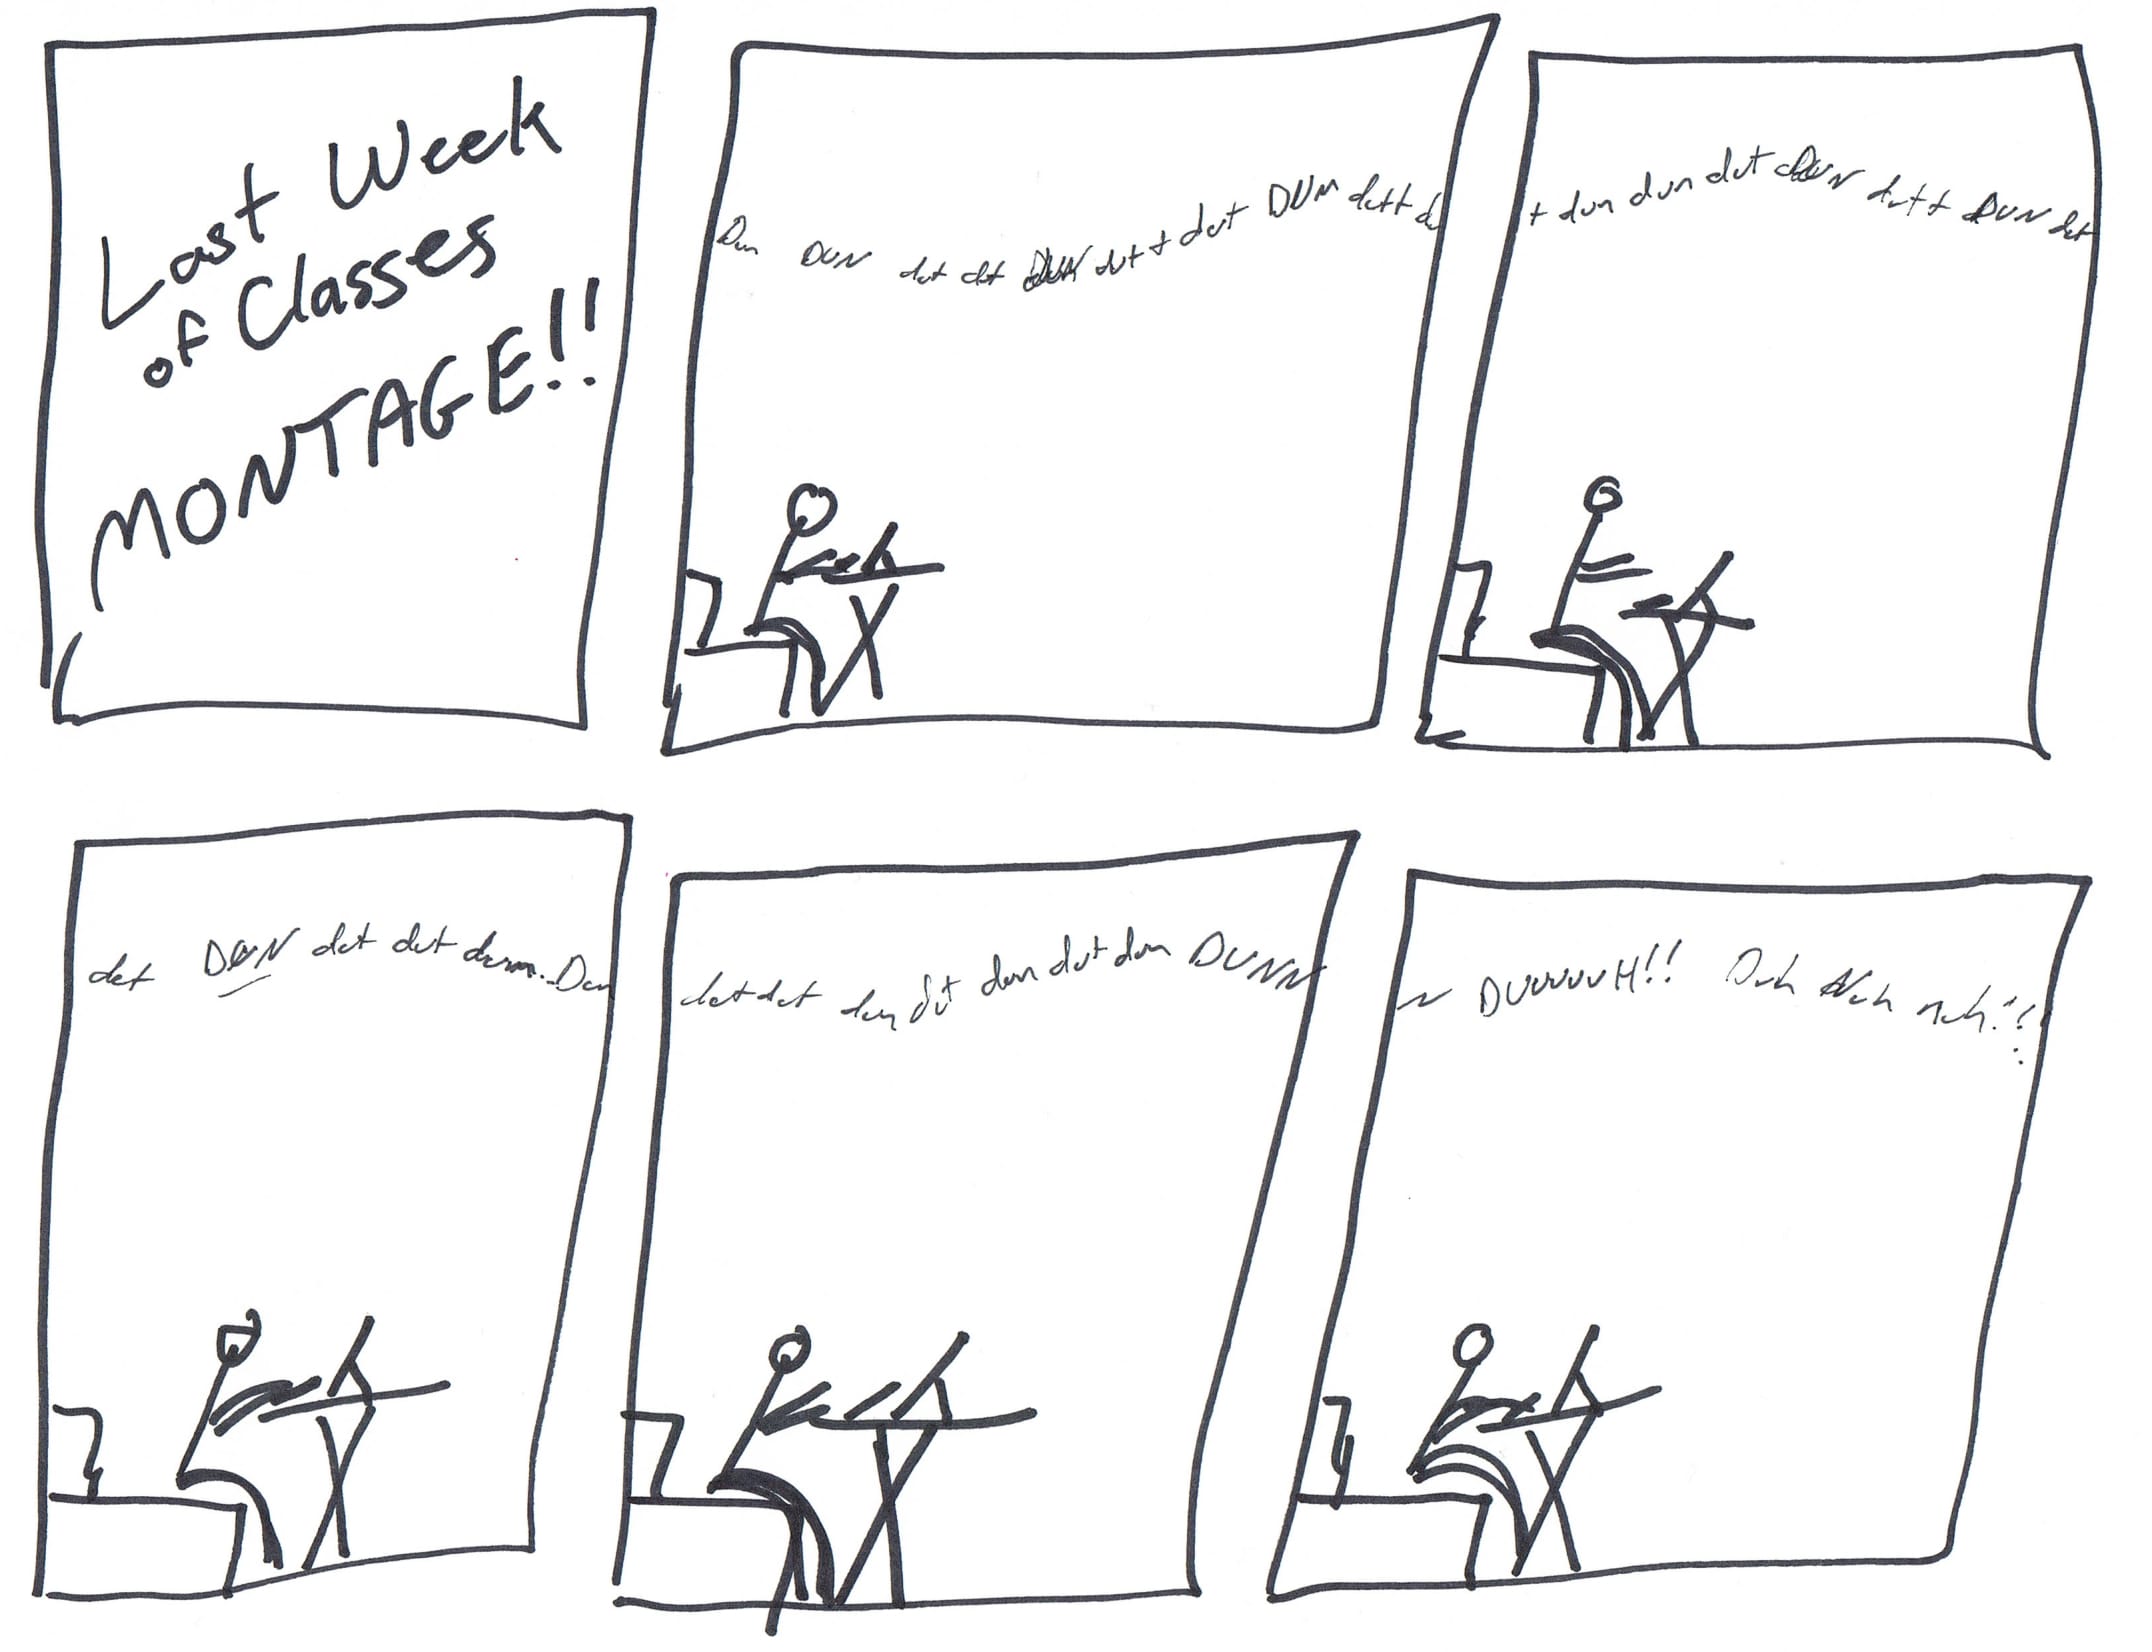 Last Week
of Classes
MONTAGE!!
Dun DUN det det DUN dut t det DUN dett d
t dun dun dut DUN dett DUN det
det DUN det det dunn.. Dun
det det dun dut dun dut dun DUNN
N DUUUUUH!! Duh Nuh nuh!!